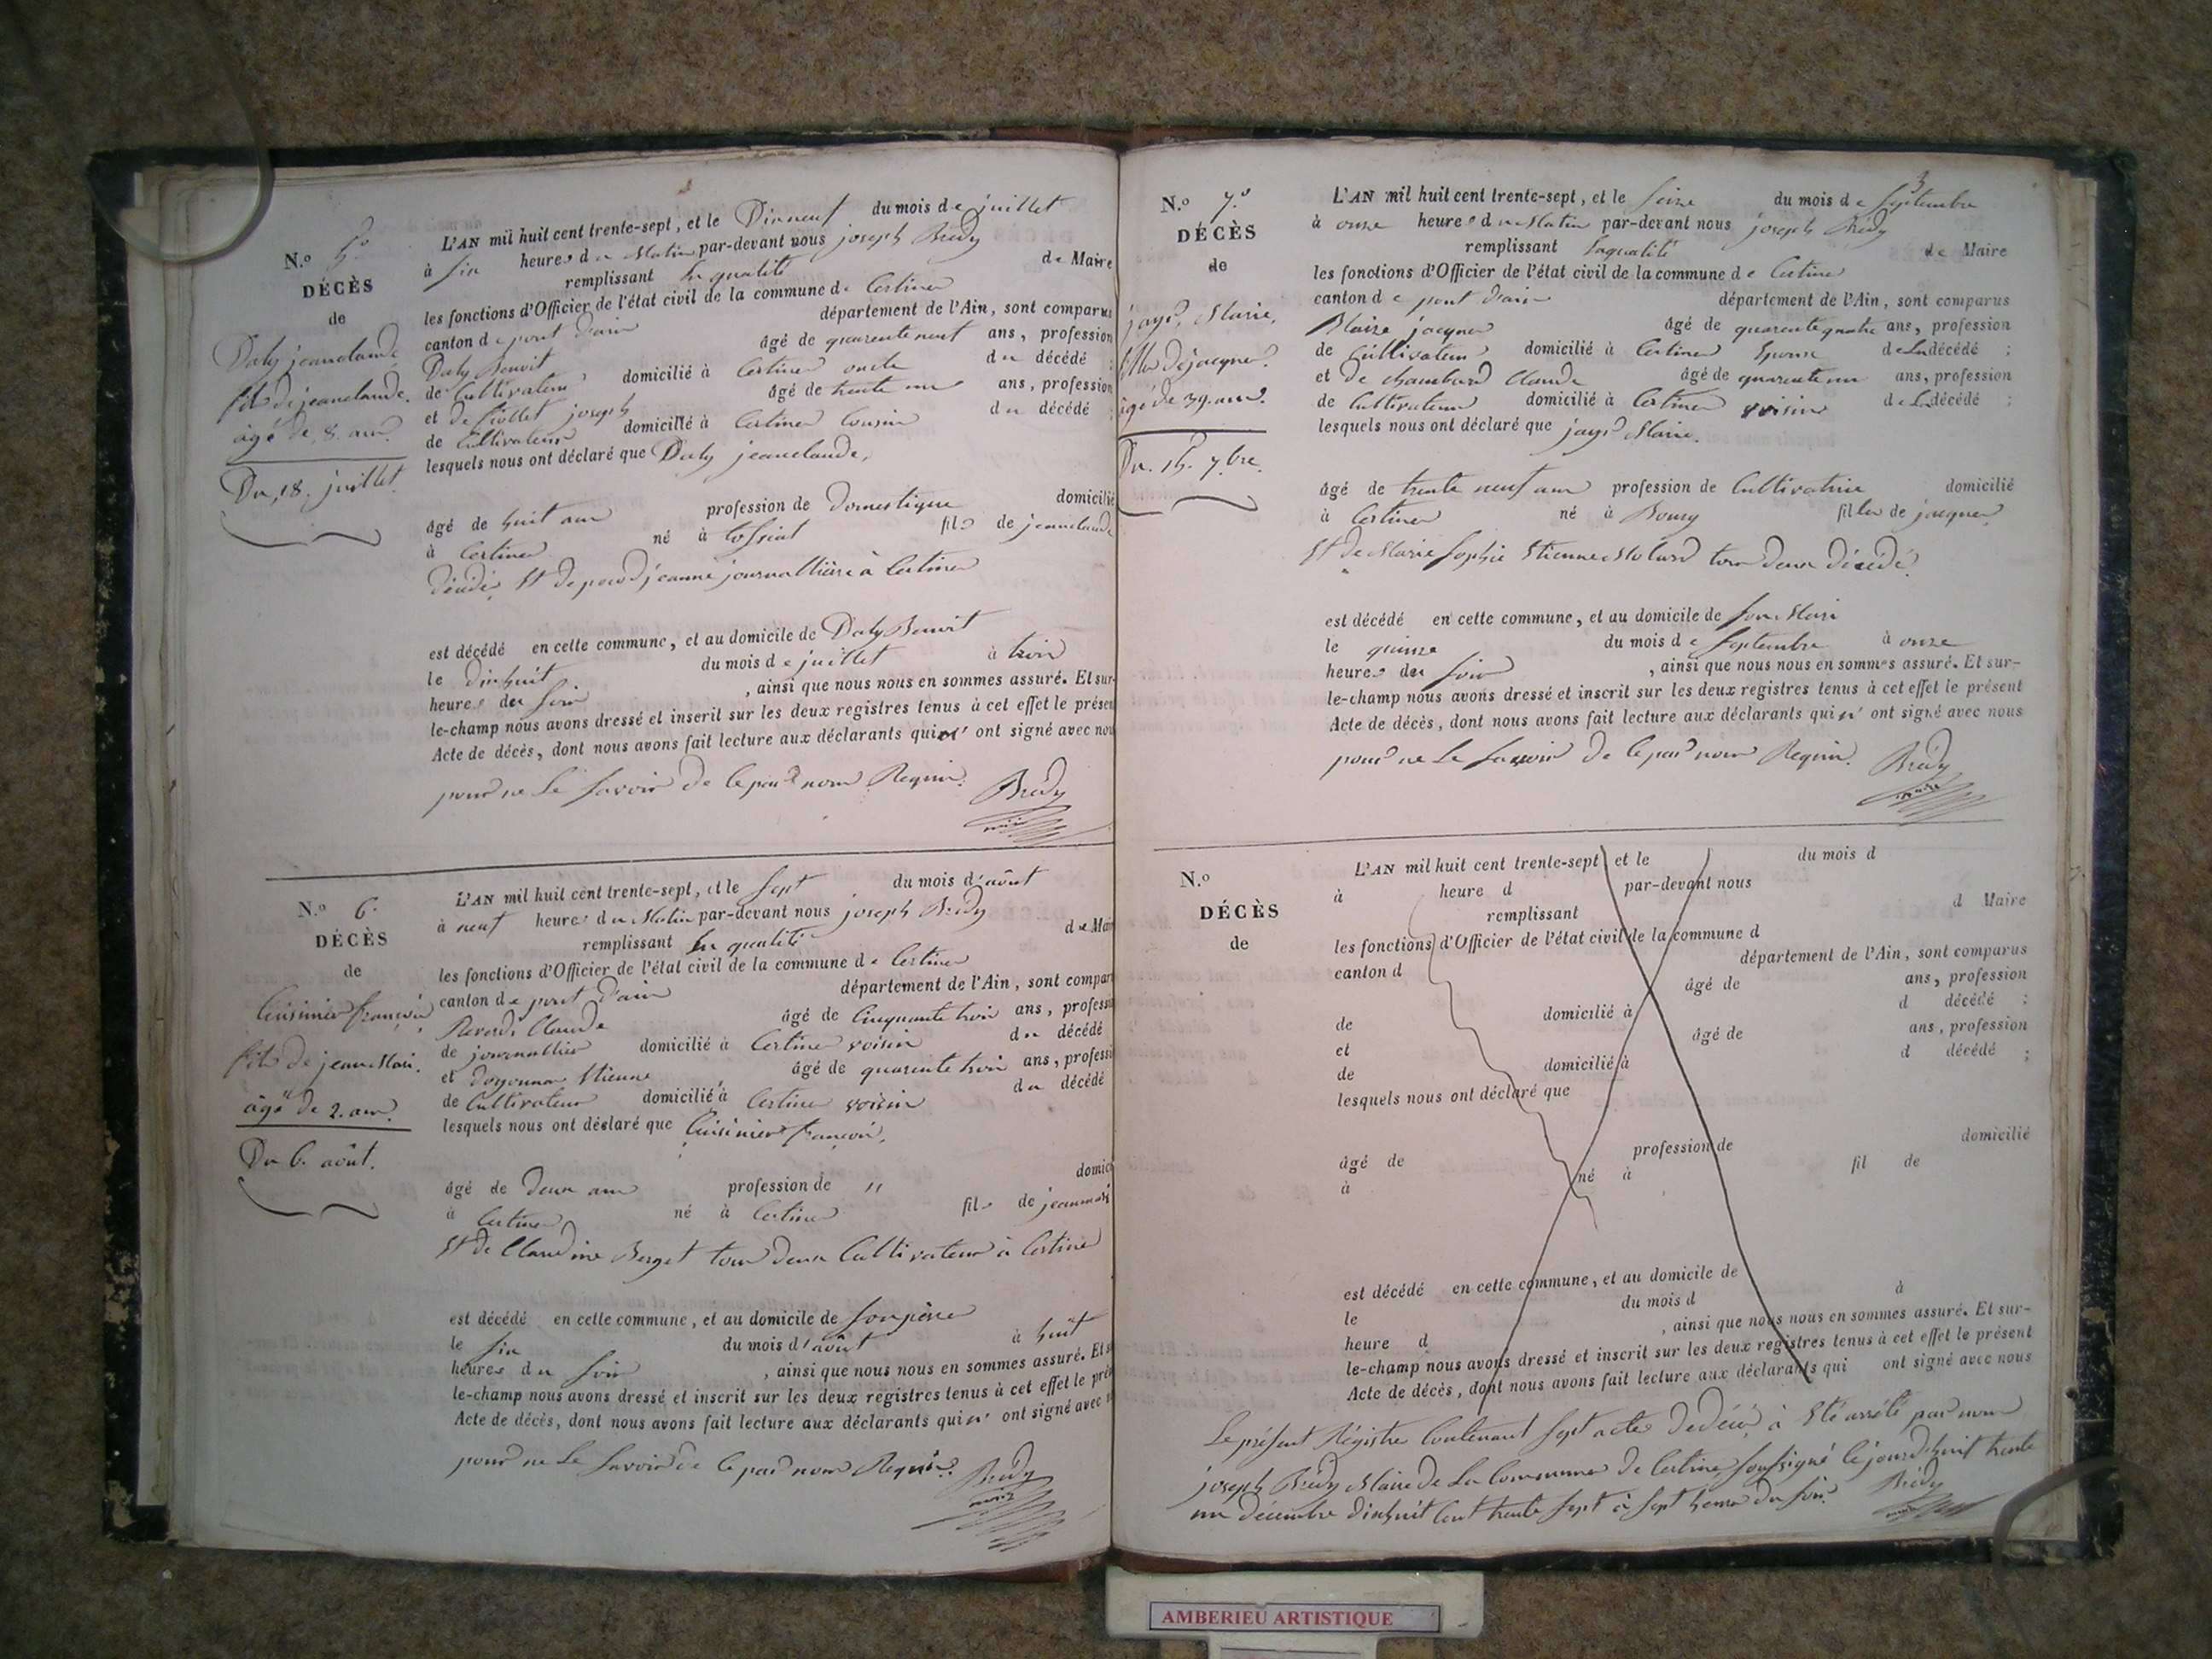 N.o 5.o
DÉCÈS
de
Daly jeanclaude
fils de jeanclaude.
âgé de 8. ans.
Du 18. juillet.
L'AN mil huit cent trente-sept, et le Dixneuf du mois de juillet
à six heures du Matin par-devant nous joseph Brédy
remplissant En qualité de Maire
les fonctions d'Officier de l'état civil de la commune de Certines
canton de pont d'ain département de l'Ain, sont comparus
Daly Benoit âgé de quarente neuf ans, profession
de Cultivateur domicilié à Certines oncle du décédé ;
et de joseph âgé de trente un ans, profession
de Cultivateur domicilié à Certines Cousin du décédé ;
lesquels nous ont déclaré que Daly jeanclaude,
âgé de huit ans profession de Domestique domicilié
à Certines né à tossiat fils de jeanclaude
décédé, Et de jeanne journallière à Certines
est décédé en cette commune, et au domicile de Daly Benoit
le dixhuit du mois de juillet à trois
heures du soir , ainsi que nous nous en sommes assuré. Et sur-
le-champ nous avons dressé et inscrit sur les deux registres tenus à cet effet le présen
Acte de décès, dont nous avons fait lecture aux déclarants qui n' ont signé avec nou
pour ne le savoir de ce par nous Requis. Brédy
N.o 6.
DÉCÈS
de
Cuisinier françois
fils de jean Mari.
âgé de 2. ans.
Du 6. août.
L'AN mil huit cent trente-sept, et le sept du mois d'août
à neuf heures du Matin par-devant nous joseph Brédy
remplissant En qualité de Mai
les fonctions d'Officier de l'état civil de la commune de Certines
canton de pont d'ain département de l'Ain, sont compar
Claude âgé de Cinquante trois ans, profess
de journallier domicilié à Certines voisin du décédé
et doyonnax Etienne âgé de quarente trois ans, profess
de Cultivateur domicilié à Certines voisin du décédé
lesquels nous ont déclaré que Cuisinier françois,
âgé de deux ans profession de " domici
à Certines né à Certines fils de jeanmari
Et de Claudine Berget tous deux Cultivateurs à Certines
est décédé en cette commune, et au domicile de son père
le six du mois d'août à huit
heures du soir , ainsi que nous nous en sommes assuré. Et s
le-champ nous avons dressé et inscrit sur les deux registres tenus à cet effet le pré
Acte de décès, dont nous avons fait lecture aux déclarants qui n' ont signé avec n
pour ne le savoir de ce par nous Requis. Brédy
3
N.o 7.o
DÉCÈS
de
Marie,
fille de jacques.
âgé de 39. ans.
Du. 15. 7.bre.
L'AN mil huit cent trente-sept, et le seize du mois de septembre
à onze heures du Matin par-devant nous joseph Brédy
remplissant la qualité de Maire
les fonctions d'Officier de l'état civil de la commune de Certines
canton de pont d'ain département de l'Ain, sont comparus
Blaize jacques âgé de quarente quatre ans, profession
de Cultivateur domicilié à Certines Epoux de La décédé ;
et de chambard Claude âgé de quarente un ans, profession
de Cultivateur domicilié à Certines voisin de La décédé ;
lesquels nous ont déclaré que Marie.
âgé de trente neuf ans profession de Cultivatrice domicilié
à Certines né à Bourg fille de jacques
Et de Marie Sophie Etiennette tous deux décédé.
est décédé en cette commune, et au domicile de son Mari
le quinze du mois de septembre à onze
heures du soir , ainsi que nous nous en sommes assuré. Et sur-
le-champ nous avons dressé et inscrit sur les deux registres tenus à cet effet le présent
Acte de décès, dont nous avons fait lecture aux déclarants qui n' ont signé avec nous
pour ne le savoir de ce par nous Requis. Brédy
N.o
DÉCÈS
de
L'AN mil huit cent trente-sept, et le du mois d
à heure d par-devant nous
remplissant d Maire
les fonctions d'Officier de l'état civil de la commune d
canton d département de l'Ain, sont comparus
âgé de ans, profession
de domicilié à d décédé ;
et âgé de ans, profession
de domicilié à d décédé ;
lesquels nous ont déclaré que
âgé de profession de domicilié
à né à fil de
est décédé en cette commune, et au domicile de
le du mois d à
heure d , ainsi que nous nous en sommes assuré. Et sur-
le-champ nous avons dressé et inscrit sur les deux registres tenus à cet effet le présent
Acte de décès, dont nous avons fait lecture aux déclarants qui ont signé avec nous
Le présent Régistre Contenant sept acte de décès, à Eté arrêté par nous
joseph Brédy Maire de La Commune de Certines soussigné Cejourd'huit trente
un décembre dixhuit Cent trente sept à sept heures du soir. Brédy
AMBERIEU ARTISTIQUE